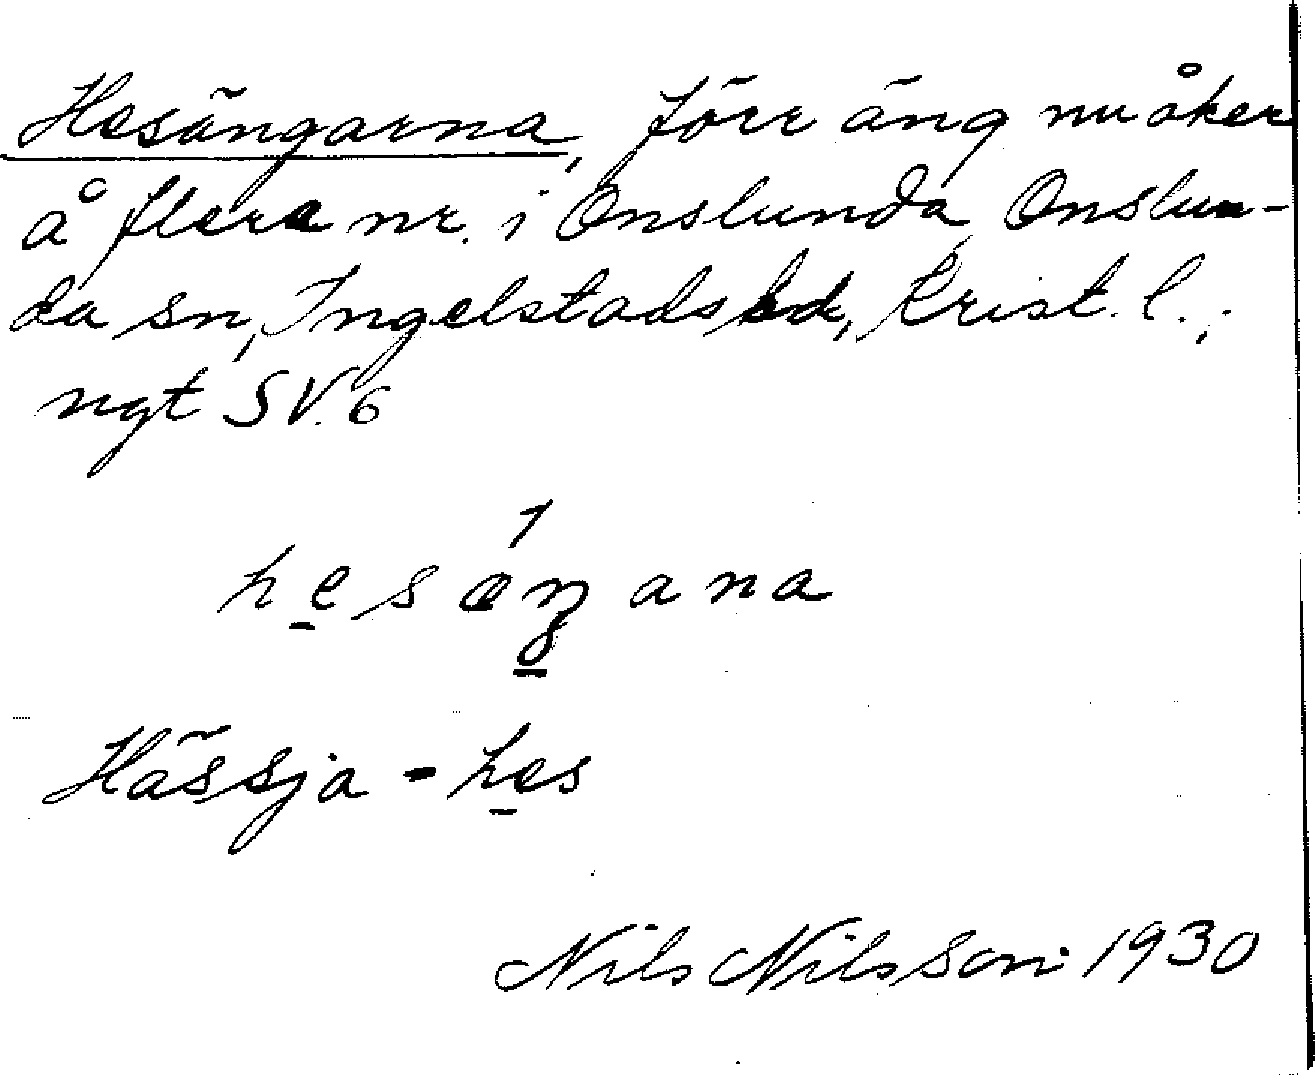 Hesängarna, förr äng nu åker
å flera nr. i Onslunda, Onslun-
da sn, Ingelstads hd, Krist. l.;
ngt SV. 6
hesæŋana
Hässja - hes
Nils Nilsson 1930